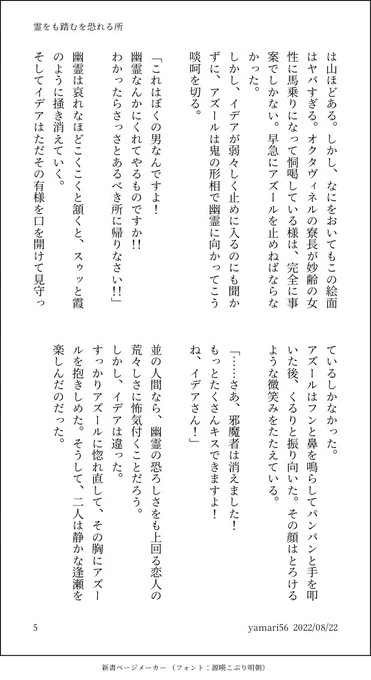 霊をも踏むを恐れる所
は山ほどある。しかし、なにをおいてもこの絵面
はヤバすぎる。オクタヴィネルの寮長が妙齢の女
性に馬乗りになって恫喝している様は、完全に事
案でしかない。早急にアズールを止めねばならな
かった。
しかし、イデアが弱々しく止めに入るのにも聞か
ずに、アズールは鬼の形相で幽霊に向かってこう
啖呵を切る。
「これはぼくの男なんですよ！
幽霊なんかにくれてやるものですか!!
わかったらさっさとあるべき所に帰りなさい!!」
幽霊は哀れなほどこくこくと頷くと、スゥッと霞
のように掻き消えていく。
そしてイデアはただその有様を口を開けて見守っ
ているしかなかった。
アズールはフンと鼻を鳴らしてパンパンと手を叩
いた後、くるりと振り向いた。その顔はとろける
ような微笑みをたたえている。
「……さあ、邪魔者は消えました！
もっとたくさんキスできますよ！
ね、イデアさん！」
並の人間なら、幽霊の恐ろしさをも上回る恋人の
荒々しさに怖気付くことだろう。
しかし、イデアは違った。
すっかりアズールに惚れ直して、その胸にアズー
ルを抱きしめた。そうして、二人は静かな逢瀬を
楽しんだのだった。
5
yamari56 2022/08/22
新書ページメーカー（フォント：源暎こぶり明朝）